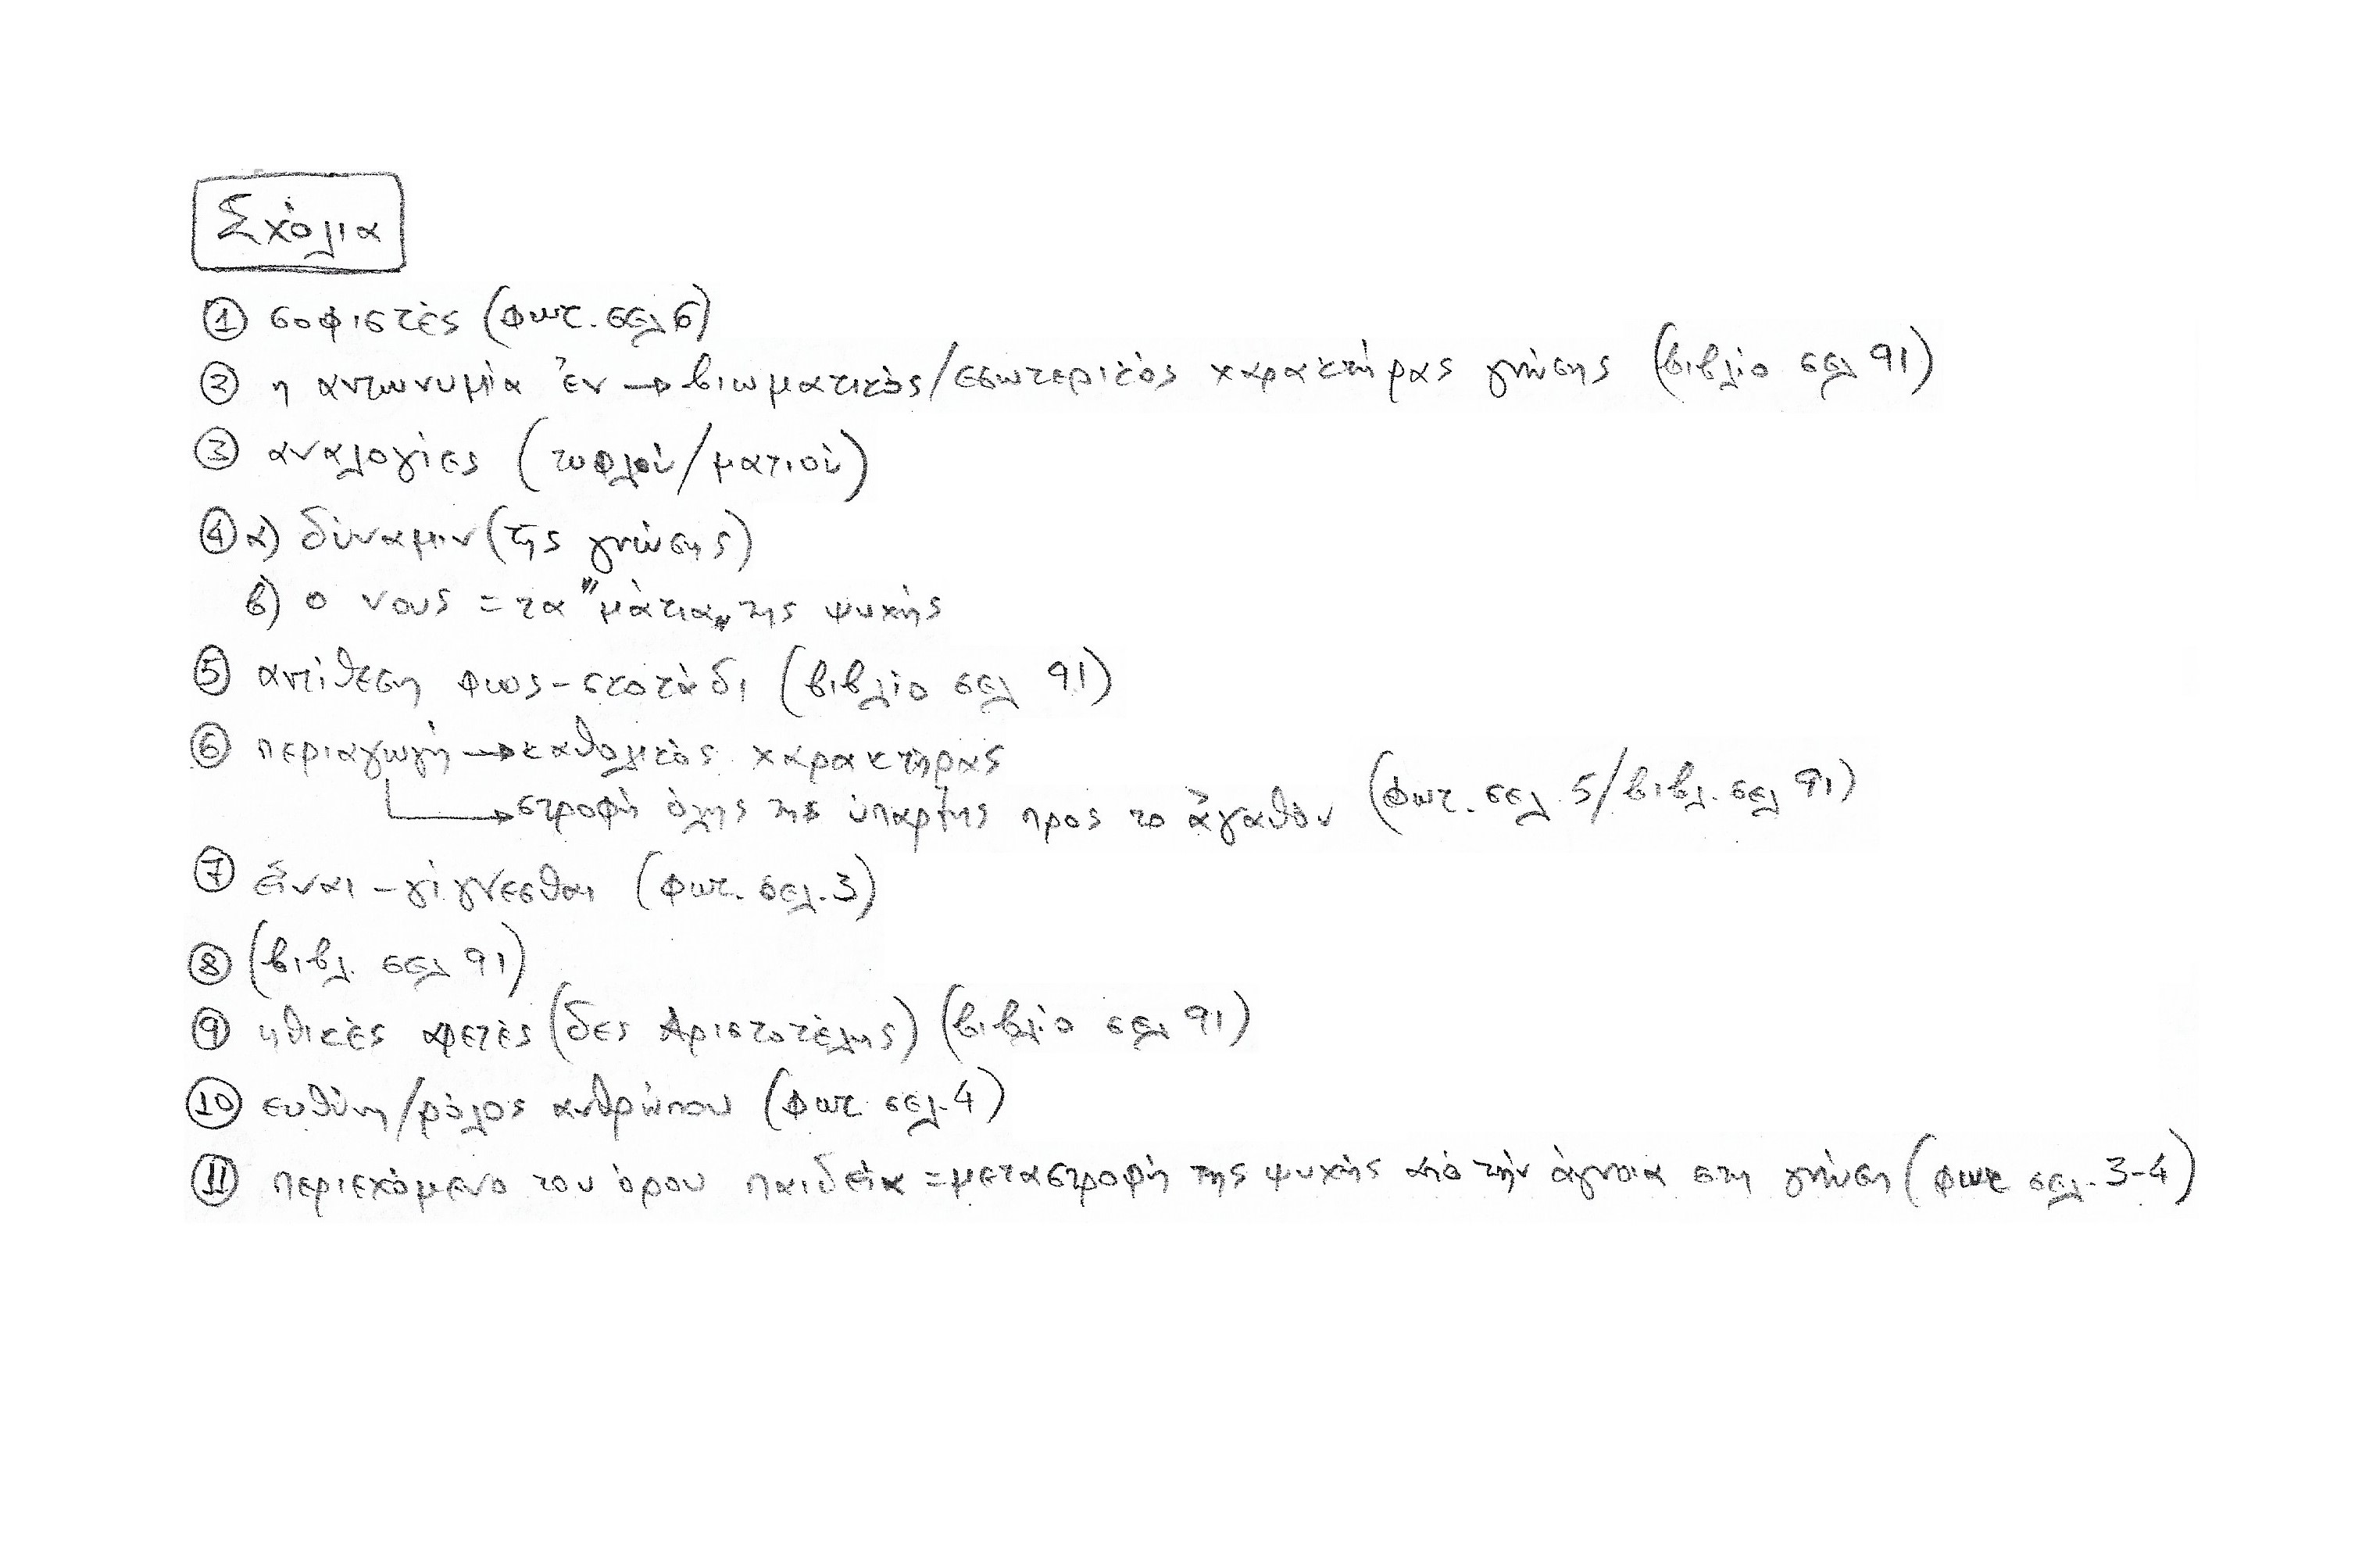 Σχόλια
① σοφιστές (φωτ. σελ 6)
② η αντωνυμία ἐν → βιωματικός/εσωτερικός χαρακτήρας γνώσης (βιβλίο σελ 91)
③ αναλογίες (τυφλού/ματιού)
④ α) δύναμιν (της γνώσης)
β) ο νους = τα "μάτια" της ψυχής
⑤ αντίθεση φως-σκοτάδι (βιβλίο σελ 91)
⑥ περιαγωγή → καθολικός χαρακτήρας
→ στροφή όλης της ύπαρξης προς το ἀγαθόν (φωτ. σελ. 5/βιβλ. σελ 91)
⑦ εἶναι - γίγνεσθαι (φωτ. σελ. 3)
⑧ (βιβλ. σελ 91)
⑨ ηθικές αρετές (δες Αριστοτέλης) (βιβλίο σελ 91)
⑩ ευθύνη/ρόλος ανθρώπου (φωτ σελ. 4)
⑪ περιεχόμενο του όρου παιδεία = μεταστροφή της ψυχής από την άγνοια στη γνώση (φωτ σελ. 3-4)